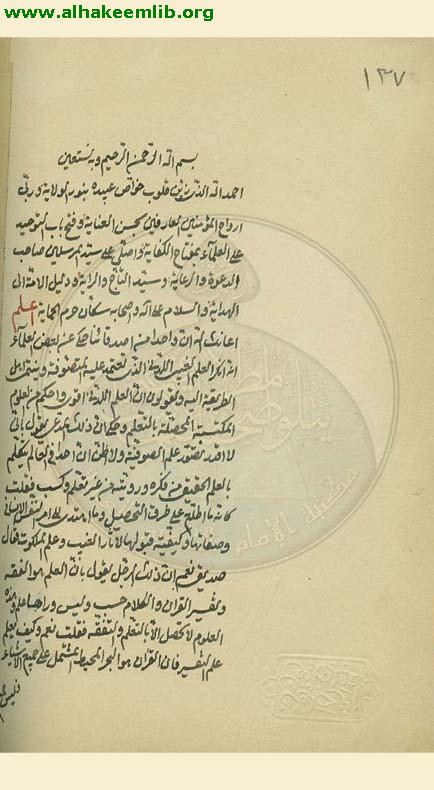 www.alhakeemlib.org
١٣٧
بسم الله الرحمن الرحيم وبه نستعين
احمد الله الذي زين قلوب خواص عبيده بنور الولاية وربى
ارواح المؤمنين العارفين بحسن العناية وفتح باب التوحيد
على العلماء بمفتاح الكفاية واصلى على سيد المرسلين صاحب
الدعوة والرعاية وسيد التاج والراية ودليل الامة الى
الهداية والسلام على اله واصحابه سكان حرم الحماية اعلم
اعانك الله ان واحدا من اصدقائنا حكى عن بعض العلماء
انه انكر العلم الغيب اللدني الذي يعتمد عليه المتصوفة وينتمى اهل
الطريقة اليه ويقولون ان العلم اللدني اقوى واحكم من العلوم
المكتسبة المحصلة بالتعلم وحكى ان ذلك المدعى يقول بانى
لا اقدر بتصور علم الصوفية ولا اظن ان احدا فى العالم يتكلم
بالعلم الحقيقي من فكره ورويته من غير تعلم وكسب فقلت
كانه ما اطلع على طرق التحصيل وما اهتدى الى امر النفس الانسانية
وصفاتها وكيفية قبولها لاثار الغيب وعلم الملكوت فقال
صديقي نعم ان ذلك الرجل يقول بان العلم هو الفقه
وتفسير القران والكلام حسب وليس وراءها علم وهذه
العلوم لا تحصل الا بالتعلم والتفقه فقلت نعم وكيف يعلم
علم التفسير فان القران هو البحر المحيط المشتمل على جميع الاشياء